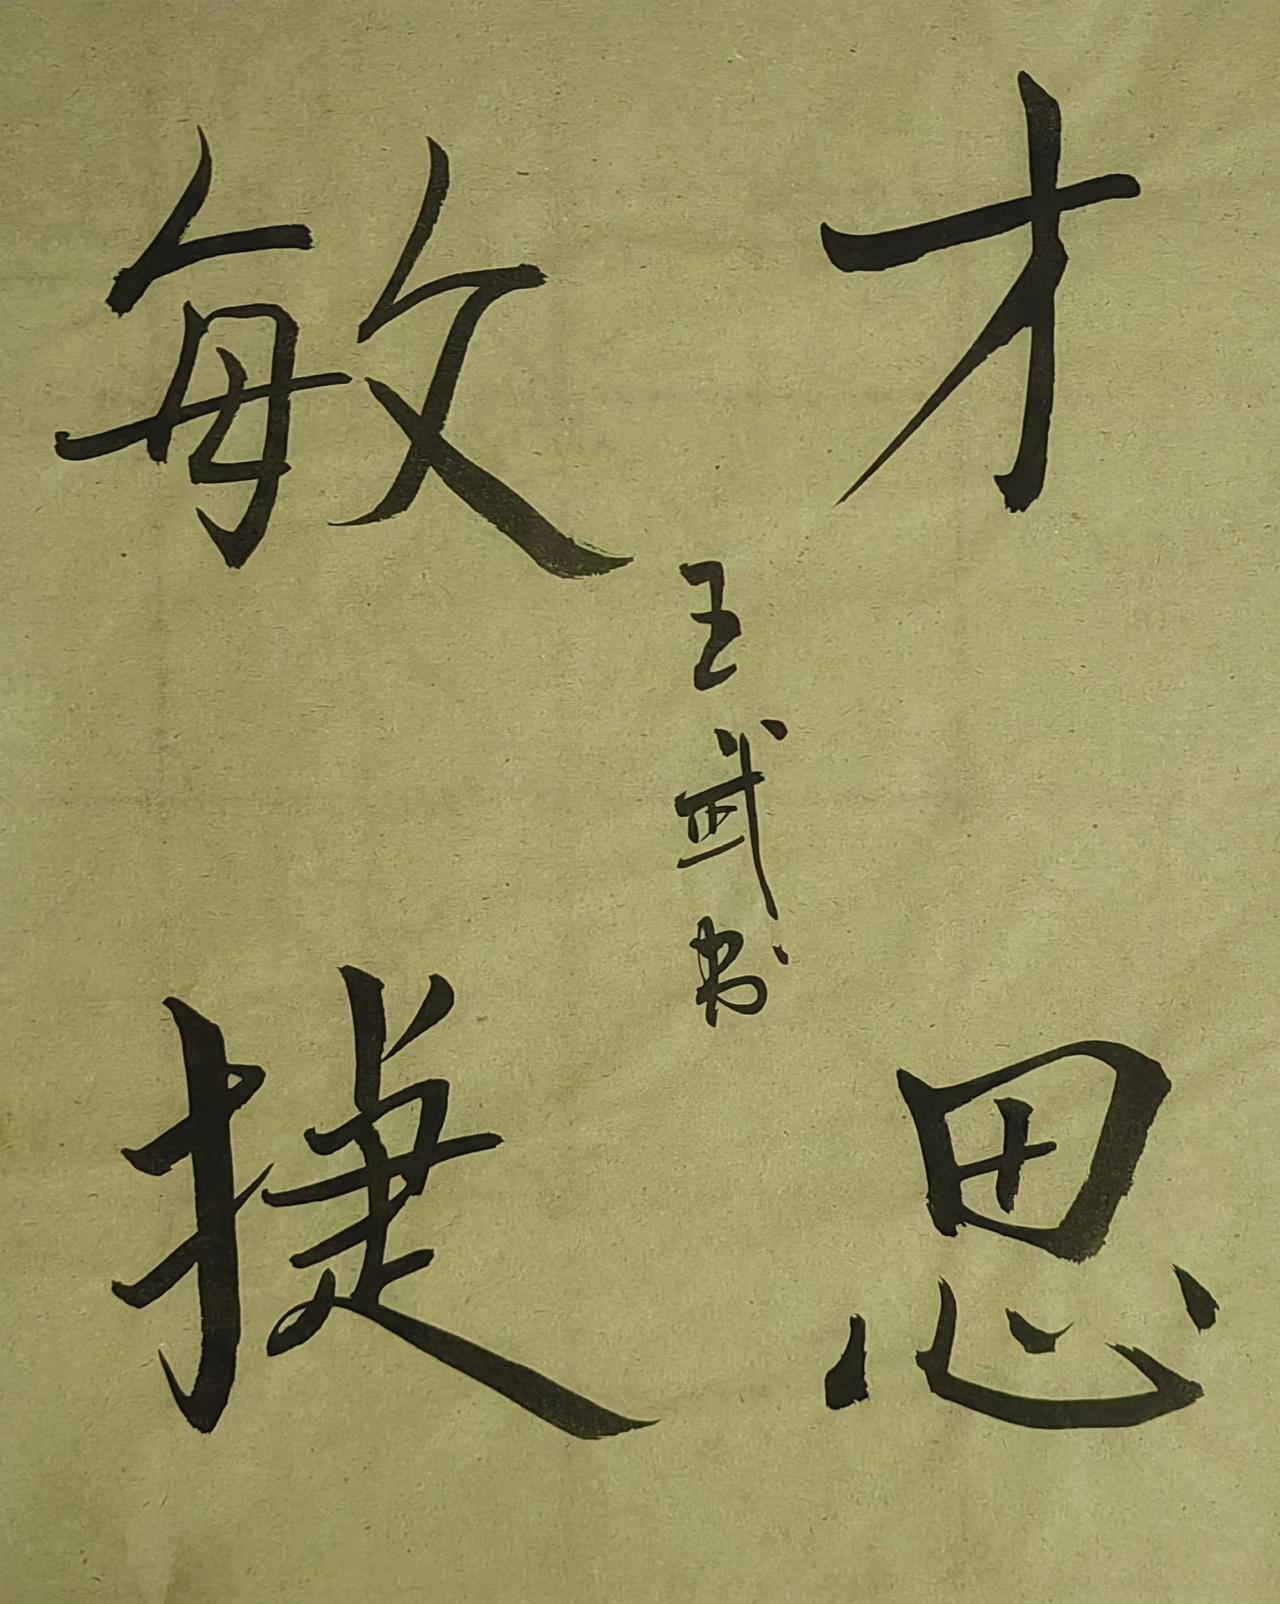 才思
敏捷
王武书